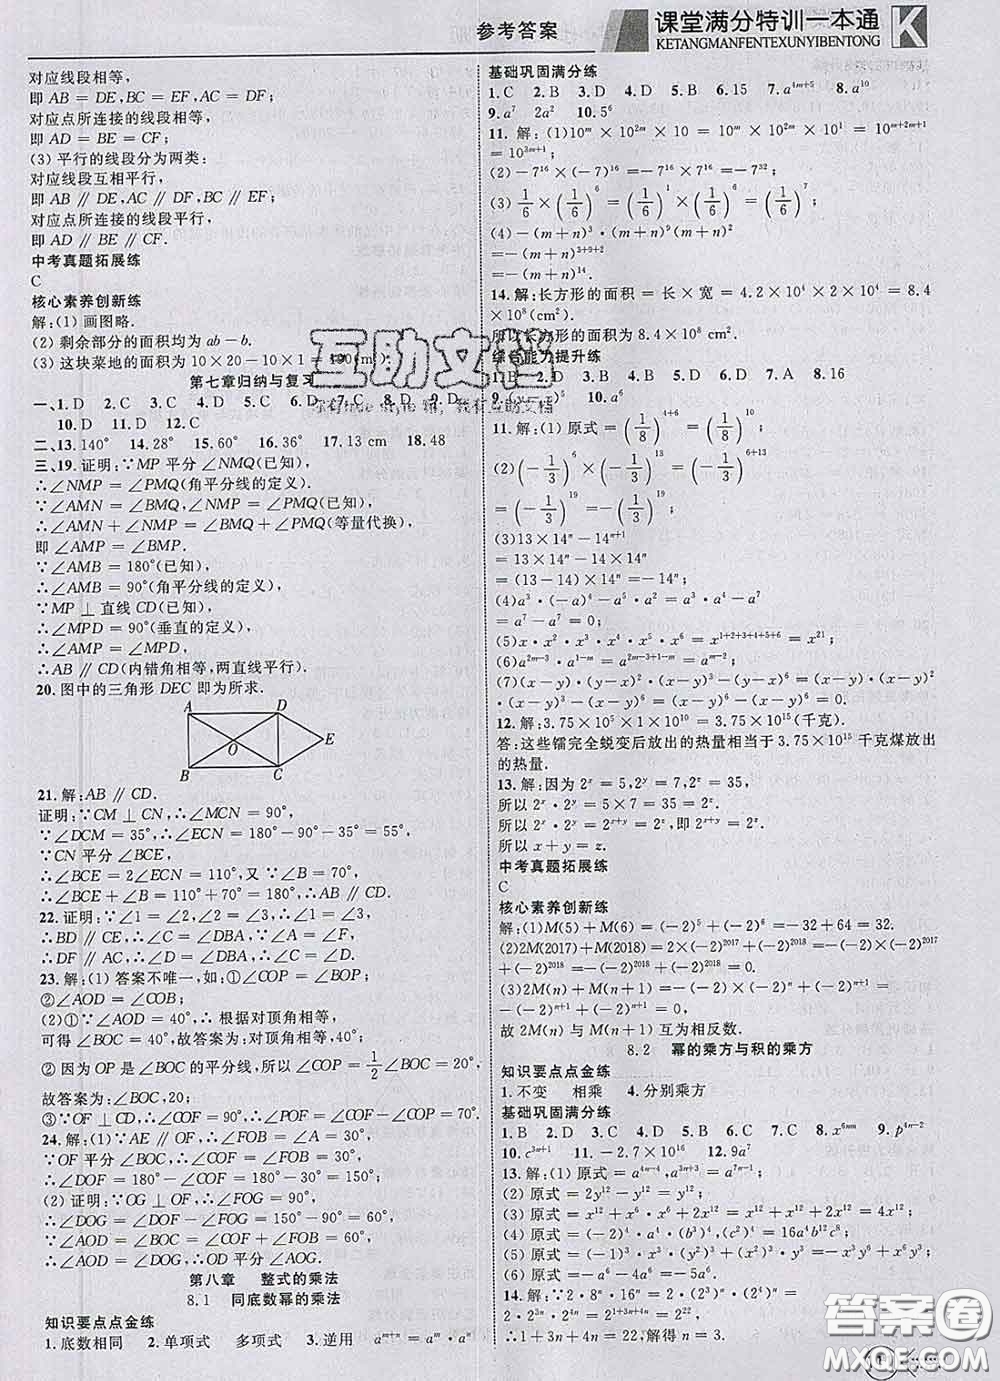 参考答案
课堂满分特训一本通
KETANGMANFENTEXUNYIBENTONG
对应线段相等,
即 AB = DE,BC = EF,AC = DF;
对应点所连接的线段相等,
即 AD = BE = CF;
(3) 平行的线段分为两类:
对应线段互相平行,
即 AB ∥ DE,AC ∥ DF,BC ∥ EF;
对应点所连接的线段平行,
即 AD ∥ BE ∥ CF.
中考真题拓展练
C
核心素养创新练
解:(1) 画图略.
(2) 剩余部分的面积均为 ab − b.
(3) 这块菜地的面积为 10 × 20 − 10 × 1 = 190(m²).
第七章归纳与复习
一、1. D 2. C 3. C 4. C 5. C 6. D 7. C 8. C 9. D
10. D 11. D 12. C
二、13. 140° 14. 28° 15. 60° 16. 36° 17. 13 cm 18. 48
三、19. 证明:∵MP 平分∠NMQ(已知),
∴∠NMP = ∠PMQ(角平分线的定义).
∵∠AMN = ∠BMQ,∠NMP = ∠PMQ(已知),
∴∠AMN + ∠NMP = ∠BMQ + ∠PMQ(等量代换),
即∠AMP = ∠BMP.
∵∠AMB = 180°(已知),
∴∠AMB = 90°(角平分线的定义),
∵MP ⊥ 直线 CD(已知),
∴∠MPD = 90°(垂直的定义),
∴∠AMP = ∠MPD,
∴AB ∥ CD(内错角相等,两直线平行).
20. 图中的三角形 DEC 即为所求.
A D
O E
B C
21. 解:AB ∥ CD.
证明:∵CM ⊥ CN,∴∠MCN = 90°,
∵∠DCM = 35°,∴∠ECN = 180° − 90° − 35° = 55°,
∵CN 平分∠BCE,
∴∠BCE = 2∠ECN = 110°,又∵∠B = 70°,
∴∠BCE + ∠B = 110° + 70° = 180°,∴AB ∥ CD.
22. 证明:∵∠1 = ∠2,∠2 = ∠3,∴∠1 = ∠3,
∴BD ∥ CE,∴∠C = ∠DBA,∵∠A = ∠F,
∴DF ∥ AC,∴∠D = ∠DBA,∴∠C = ∠D.
23. 解:(1) 答案不唯一,如:①∠COP = ∠BOP;
②∠AOD = ∠COB;
(2)①∵∠AOD = 40°,∴ 根据对顶角相等,
可得∠BOC = 40°,故答案为:对顶角相等,40°;
② 因为 OP 是∠BOC 的平分线,所以∠COP = 1/2∠BOC = 20°,
故答案为:∠BOC,20;
③∵OF ⊥ CD,∴∠COF = 90°,∴∠POF = ∠COF − ∠COP = 70°.
24. 解:(1)∵AE ∥ OF,∴∠FOB = ∠A = 30°,
∵OF 平分∠BOC,∴∠COF = ∠FOB = 30°,
∴∠DOF = 180° − ∠COF = 150°;
(2) 证明:∵OG ⊥ OF,∴∠FOG = 90°,
∴∠DOG = ∠DOF − ∠FOG = 150° − 90° = 60°,
∵∠AOD = ∠BOC = ∠COF + ∠FOB = 60°,
∴∠AOD = ∠DOG,∴OD 平分∠AOG.
第八章 整式的乘法
8.1 同底数幂的乘法
知识要点点金练
1. 底数相同 2. 单项式 多项式 3. 逆用 aᵐ⁺ⁿ = aᵐ · aⁿ
基础巩固满分练
1. C 2. B 3. D 4. D 5. B 6. 15 7. a⁴ᵐ⁺⁵ 8. a¹⁰
9. a⁷ 2a² 10. 5⁶
11. 解:(1)10ᵐ × 10²ᵐ × 10 = 10ᵐ × 10²ᵐ × 10¹ = 10ᵐ⁺²ᵐ⁺¹
= 10³ᵐ⁺¹;
(2)−7¹⁶ × (−7)¹⁶ = −7¹⁶ × 7¹⁶ = −7³²;
(3) 1/6 × (1/6)⁶ = (1/6)¹⁺⁶ = (1/6)⁷;
(4)−(m + n)³ · (m + n)⁹(m + n)²
=−(m + n)³⁺⁹⁺²
=−(m + n)¹⁴.
14. 解:长方形的面积 = 长 × 宽 = 4.2 × 10⁴ × 2 × 10⁴ = 8.4 ×
10⁸(cm²).
所以长方形的面积为 8.4 × 10⁸ cm².
综合能力提升练
1. B 2. D 8. 16
10. a⁶
11. 解:(1) 原式 = (1/8)⁴⁺⁶ = (1/8)¹⁰;
(2)(−1/3)⁶ × (−1/3)¹³ = (−1/3)⁶⁺¹³
= (−1/3)¹⁹ = −(1/3)¹⁹;
(3)13 × 14ⁿ − 14ⁿ⁺¹
= 13 × 14ⁿ − 14 × 14ⁿ
= (13 − 14) × 14ⁿ = −14ⁿ;
(4)a³ · (−a)⁴ − a² · a⁵ = a³ · a⁴ − a⁷
= a⁷ − a⁷ = 0;
(5)x · x² · x³ · x⁴ · x⁵ · x⁶ = x¹⁺²⁺³⁺⁴⁺⁵⁺⁶ = x²¹;
(6)a²ᵐ⁻³ · a¹⁻ᵐ = a²ᵐ⁻³⁺¹⁻ᵐ = aᵐ⁻²;
12. 解:3.75 × 10⁵ × 1 × 10¹⁰ = 3.75 × 10¹⁵(千克).
答:这些镭完全蜕变后放出的热量相当于 3.75 × 10¹⁵ 千克煤放出
的热量.
13. 解:因为 2ˣ = 5,2ʸ = 7,2ᶻ = 35,
所以 2ˣ · 2ʸ = 5 × 7 = 35 = 2ᶻ.
所以 2ˣ · 2ʸ = 2ˣ⁺ʸ = 2ᶻ,即 2ˣ⁺ʸ = 2ᶻ.
所以 x + y = z.
中考真题拓展练
C
核心素养创新练
解:(1)M(5) + M(6) = (−2)⁵ + (−2)⁶ = −32 + 64 = 32.
(2)2M(2017) + M(2018) = 2 × (−2)²⁰¹⁷ + (−2)²⁰¹⁸ = −(−2) × (−2)²⁰¹⁷
+ (−2)²⁰¹⁸ = −(−2)²⁰¹⁸ + (−2)²⁰¹⁸ = 0.
(3)2M(n) + M(n + 1) = −(−2) × (−2)ⁿ + (−2)ⁿ⁺¹ =
−(−2)ⁿ⁺¹ + (−2)ⁿ⁺¹ = 0.
故 2M(n) 与 M(n + 1) 互为相反数.
8.2 幂的乘方与积的乘方
知识要点点金练
1. 不变 相乘 4. 分别乘方
基础巩固满分练
1. B 2. D 3. C 4. D 5. C 6. D 7. C 8. x⁶ⁿᵐ 9. p⁴ⁿ⁻²
10. c³ⁿ⁺¹ 11. −2.7 × 10¹⁶ 12. 9a²
13. 解:(1) 原式 = a⁴ⁿ⁻⁴ · a³ⁿ⁺³ = a⁷ⁿ⁻¹;
(2) 原式 = 2y¹² − y¹² = y¹²;
(3) 原式 = x¹² + x⁶ · x⁶ + 2x¹² = x¹² + x¹² + 2x¹² = 4x¹²;
(4) 原式 = (−2)⁴ · a⁴ · (b²)⁴ · (c²)⁴ = 16a⁴b⁸c⁸;
(5) 原式 = −a⁶ − 4a⁶ = −5a⁶.
14. 解:∵2 · 8ⁿ · 16ⁿ = 2²²,∴2 · (2³)ⁿ · (2⁴)ⁿ =
2 · 2³ⁿ · 2⁴ⁿ = 2¹⁺³ⁿ⁺⁴ⁿ = 2²²,
∴1 + 3n + 4n = 22,解得 n = 3.
互助文档
答案圈
MXQE.COM